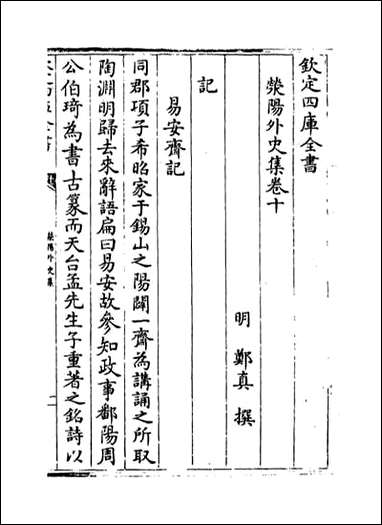 欽定四庫全書
滎陽外史集卷十
明 鄭真 撰
記
易安齋記
同郡項子希昭家于錫山之陽闢一齋為講誦之所取
陶淵明歸去來辭語扁曰易安故參知政事鄱陽周
公伯琦為書古篆而天台孟先生子重著之銘詩以
滎陽外史集